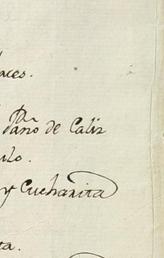 aces.
Pa
Paño de Caliz
ulo.
y Cucharita
ta.